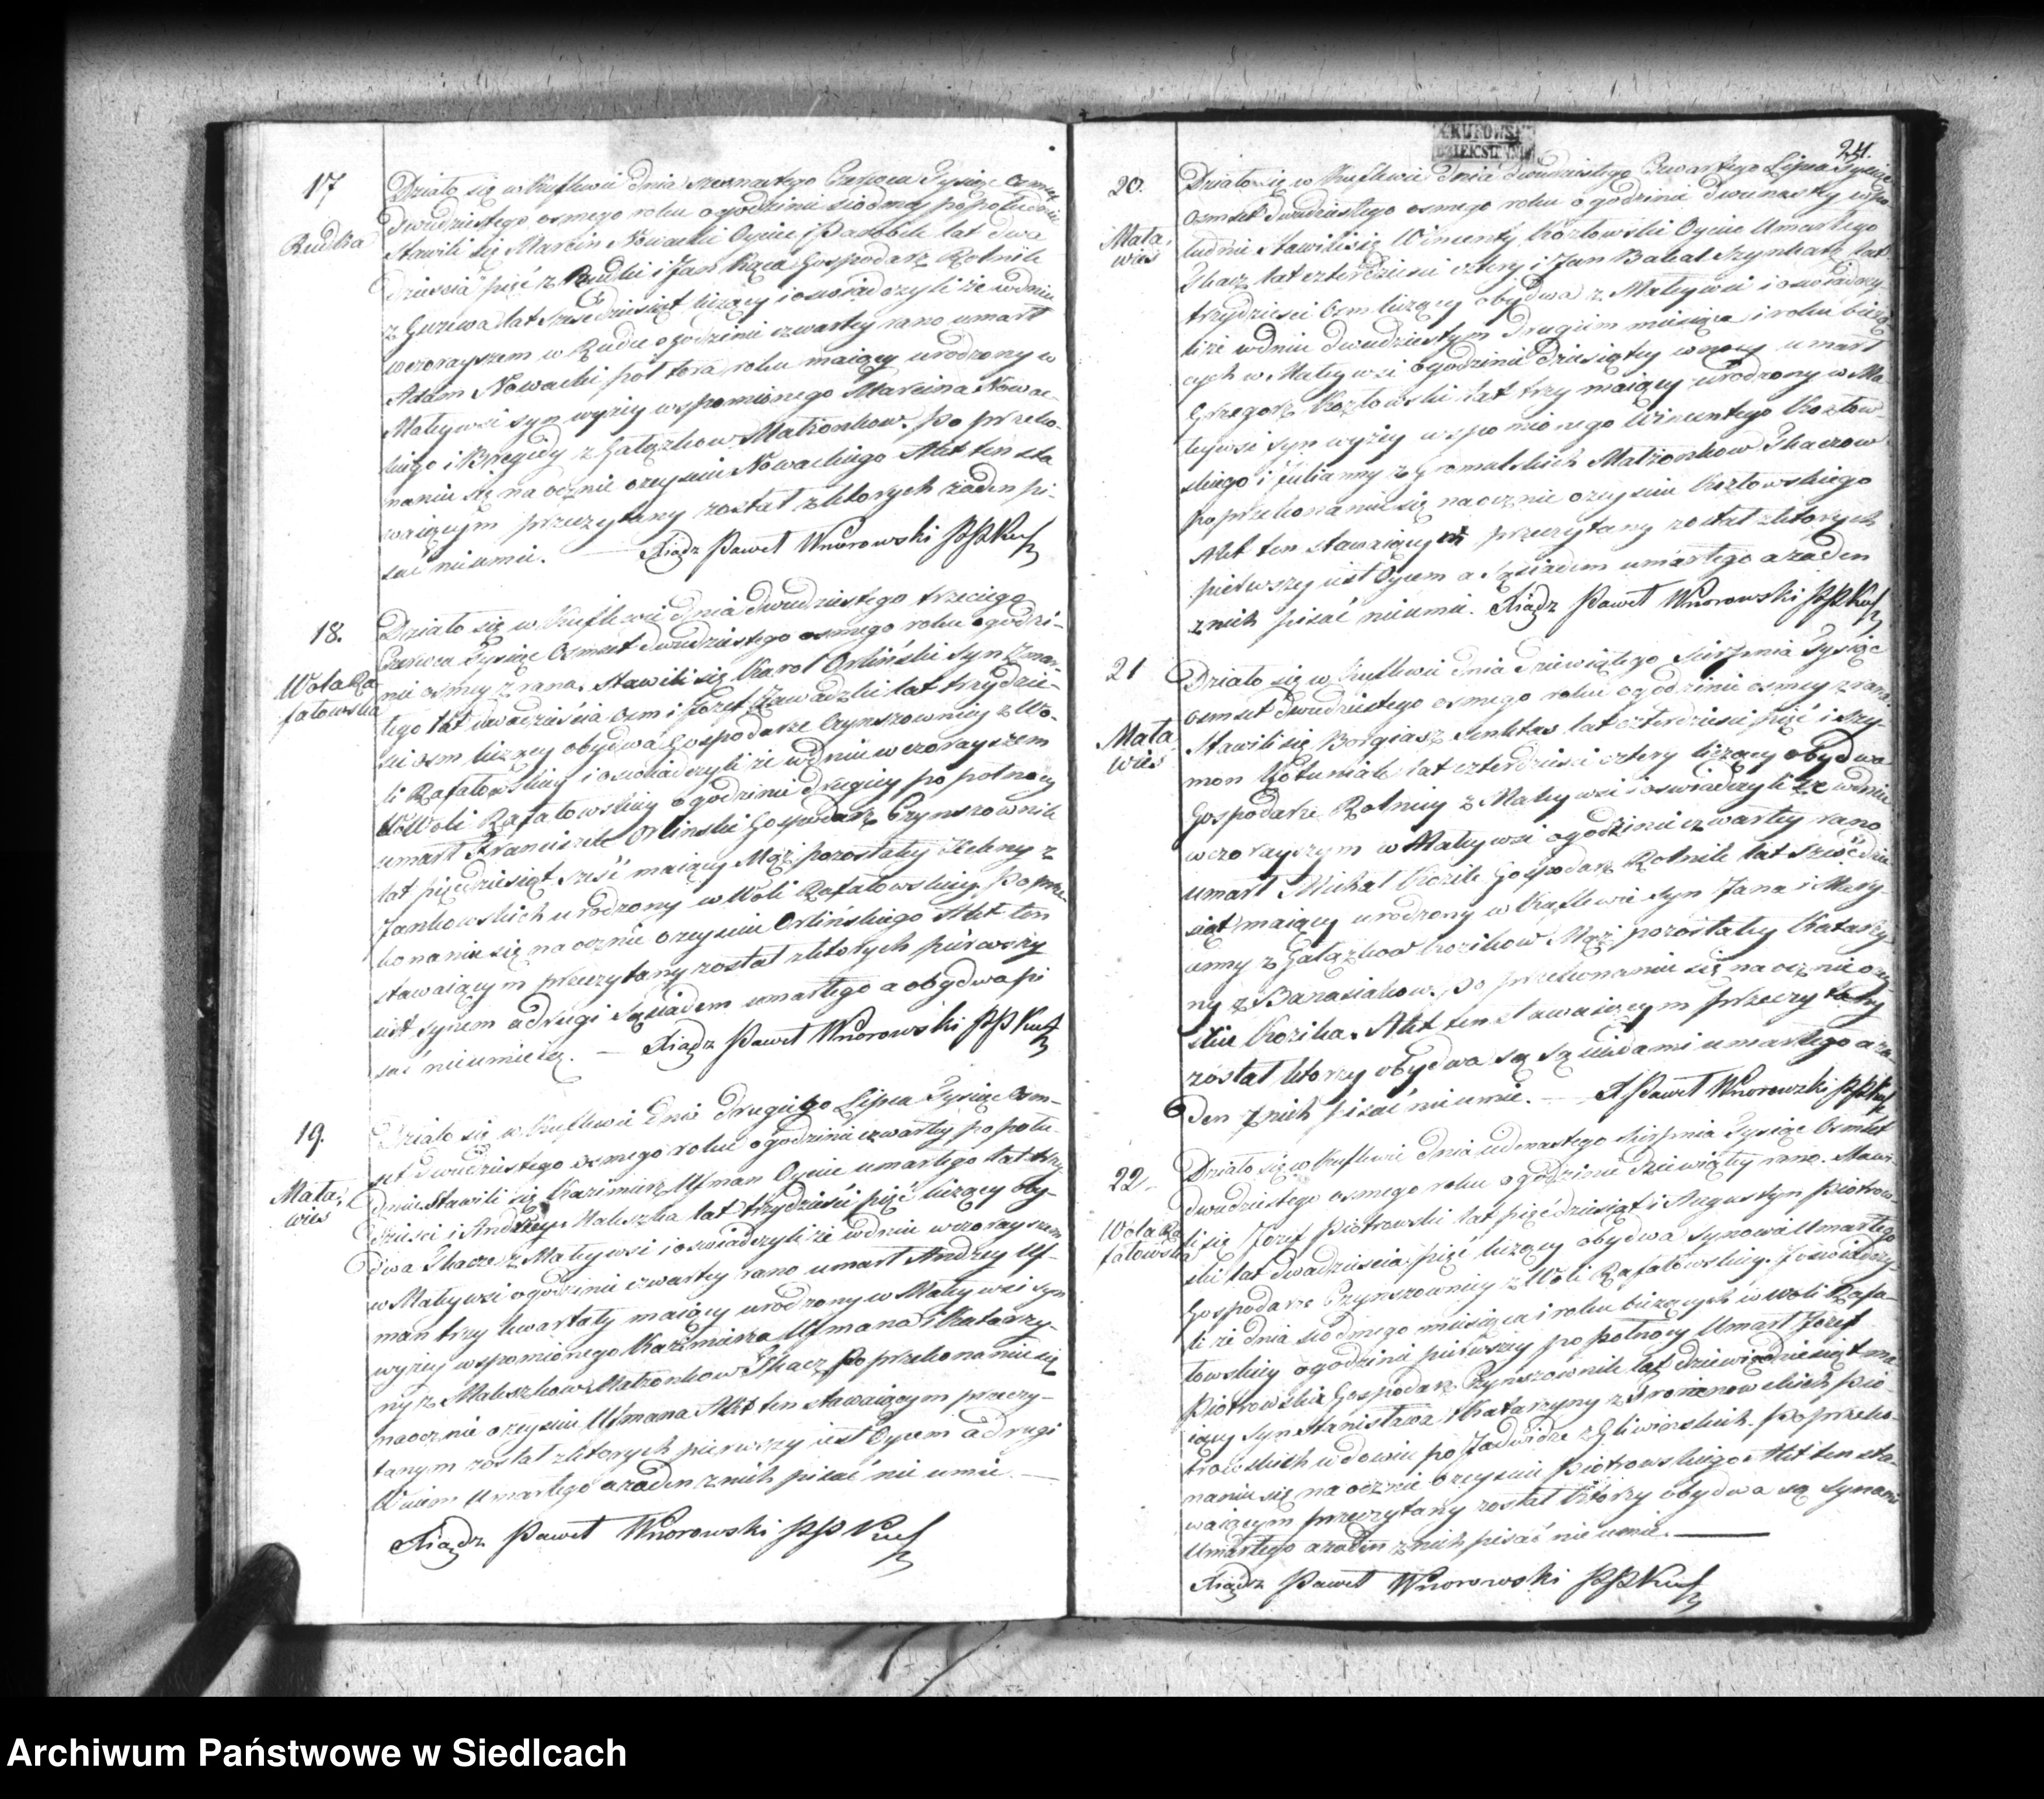 17
Rudka
Działo się w Kuflewie dnia szesnastego Czerwca Tysiąc Osmset
dwudziestego osmego roku o godzinie siodmey popołudniu
stawili się Marcin Nowacki Oyciec Parobek lat dwa
dzieścia pięć z Rudki i Jan Kąca Gospodarz Rolnik
z Guzewa lat sześćdziesiąt liczący i oswiadczyli że w dniu
wczorayszem w Rudce o godzinie czwartey rano umarł
Adam Nowacki poł tora roku maiący urodzony w
Małeywsi syn wyżey wspomionego Marcina Nowac-
kiego i Bregidy z Gałązkow Małżonkow. Po przeko-
naniu się naocznie o zeysciu Nowackiego Akt ten sta
waiącym przeczytany został z ktorych żaden pi-
sać nieumie. — Xiądz Paweł Wnorowski PPKuf
18.
Wola Ra
fałowska
Działo się w Kuflewie dnia dwudziestego trzeciego
Czerwca Tysiąc Osmset dwudziestego osmego roku o godzi-
nie osmey z rana. Stawili się Karol Orliński syn Zmar-
łego lat dwadzieścia osm i Jozef Zawadzki lat trzydzie-
sci osm liczący obydwa Gospodarze Czynszownicy z Wo-
li Rafałowskiey i oswiadczyli że w dniu wczorayszem
w Woli Rafałowskiey o godzinie drugiey po połnocy
umarł Franciszek Orliński Gospodarz Czynszownik
lat pięćdziesiąt sześć maiący Mąż pozostałey Heleny z
Jankowskich urodzony w Woli Rafałowskiey. Po prze-
konaniu się naocznie o zeysciu Orlińskiego Akt ten
stawaiącym przeczytany został z ktorych pierwszy
iest synem a drugi Sąsiadem umarłego a obydwa pi
sać nieumieią. — Xiądz Paweł Wnorowski PPKuf
19.
Mała-
wieś
Działo się w Kuflewie dnia drugiego Lipca Tysiąc Osm-
set dwudziestego osmego roku o godzinie czwartey po połu-
dniu Stawili się Kazimierz Ufman Oyciec umarłego lat trzy
dziesci i Andrzey Maluszka lat trzydzieści pięć liczący oby-
dwa Tkacze z Małeywsi i oswiadczyli że w dniu wczorayszem
w Małeywsi o godzinie czwartey rano umarł Andrzey Uf-
man trzy kwartały maiący urodzony w Małeywsi syn
wyżey wspomionego Kazimierza Ufmana i Katarzy-
ny z Maluszkow Małżonkow Tkacz Po przekonaniu się
naocznie o zeysciu Ufmana Akt ten stawaiącym przeczy-
tanym został z ktorych pierwszy iest Oycem a drugi
Wuiem Umarłego a żaden z nich pisać nie umie. —
Xiądz Paweł Wnorowski PP Kuf
24.
20.
Mała-
wieś
Działo się w Kuflewie dnia dwudziestego Czwartego Lipca Tysiąc
Osmset dwudziestego osmego roku o godzinie dwunastey w po
łudnie Stawili się Wincenty Kozłowski Oyciec Umarłego
Tkacz lat czterdziesci cztery i Jan Szynkarz lat
trzydziesci osm liczący obydwa z Małeywsi i oswiadczy-
li że w dniu dwudziestym drugim miesiąca i roku bieżą
cych w Małeywsi o godzinie dziesiątey w nocy umarł
Grzegorz Kozłowski lat trzy maiący urodzony w Ma-
łeywsi syn wyżey wspomionego Wincentego Kozłow-
skiego i Julianny z Małżonkow Tkaczow
po przekonaniu się naocznie o zeysciu Kozłowskiego
Akt ten stawaiącym przeczytany został z ktorych
pierwszy iest Oycem a Sąsiadem umarłego a żaden
z nich pisać nieumie. Xiądz Paweł Wnorowski PPKuf
21
Mała
wieś
Działo się w Kuflewie dnia dziewiątego Sierpnia Tysiąc
osmset dwudziestego osmego roku o godzinie osmey z rana.
Stawili się Borgiasz lat czterdziesci pięć i Szy-
mon lat czterdziesci cztery liczący obydwa
Gospodarze Rolnicy z Małeywsi i oswiadczyli że w dniu
wczorayszym w Małeywsi o godzinie czwartey rano
umarł Michał Kozik Gospodarz Rolnik lat sześćdzie
siąt maiący urodzony w Kuflewie syn Jana i Mary-
anny z Gałązkow Kozikow Mąż pozostałey Katarzy-
ny z Banasiakow. Po przekonaniu się naocznie o zey-
sciu Kozika. Akt ten stawaiącym przeczytany
został ktorzy obydwa są Sąsiadami umarłego a ża-
den z nich pisać nieumie. — X Paweł Wnorowski PPKuf
22.
Wola Ra
fałowska
Działo się w Kuflewie dnia iedenastego Sierpnia Tysiąc Osmset
dwudziestego osmego roku o godzinie dziewiątey rano. Stawi-
li się Jozef Piotrowski lat pięćdziesiąt i Augustyn Piotrow-
ski lat dwadzieścia pięć liczący obydwa Synowie Umarłego
Gospodarze Czynszownicy z Woli Rafałowskiey. I oswiadczy-
li że dnia siodmego miesiąca i roku bieżących w Woli Rafa-
łowskiey o godzinie pierwszey po połnocy Umarł Jozef
Piotrowski Gospodarz Czynszownik lat dziewięćdziesiąt ma
iący syn Stanisława i Katarzyny z Piо-
trowskich wdowiec po Jadwidze z Gliwinskich. Po przeko-
naniu się naocznie o zeysciu Piotrowskiego Akt ten sta-
waiącym przeczytany został ktorzy obydwa są Synami
Umarłego a żaden z nich pisać nieumie. —
Xiądz Paweł Wnorowski PPKuf
Archiwum Państwowe w Siedlcach